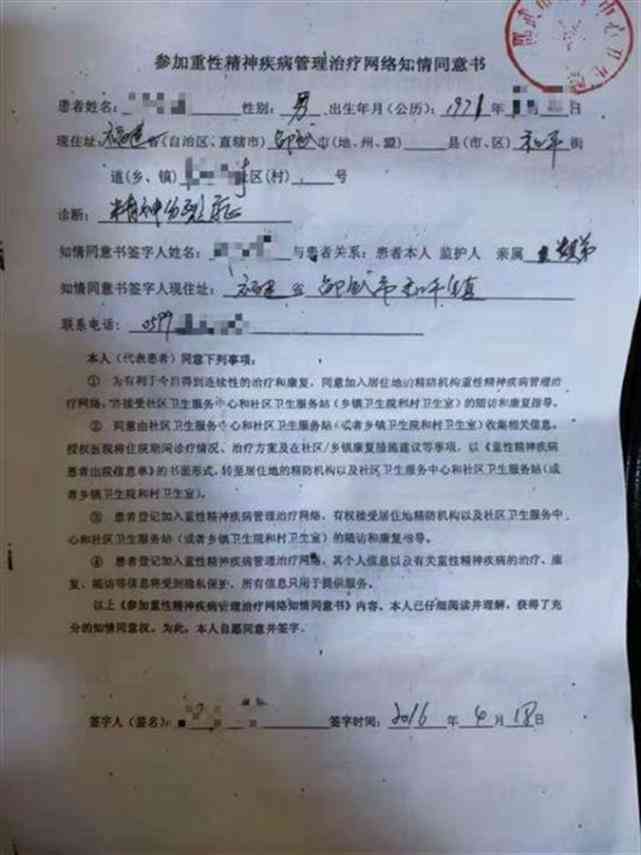 参加重性精神疾病管理治疗网络知情同意书
患者姓名: 性别: 男 出生年月(公历): 1971年 日
现住址: 福建省(自治区、直辖市) 邵武市(地、州、盟) 县(市、区) 和平街
道(乡、镇) 社区(村) 号
诊断: 精神分裂症
知情同意书签字人姓名: 与患者关系: 患者本人 监护人 亲属
知情同意书签字人现住址: 福建省邵武市和平镇
联系电话: 0599
本人(代表患者)同意下列事项:
① 为有利于今后得到连续性的治疗和康复,同意加入居住地的精防机构重性精神疾病管理治
疗网络,并接受社区卫生服务中心和社区卫生服务站(乡镇卫生院和村卫生室)的随访和康复指导。
② 同意由社区卫生服务中心和社区卫生服务站(或者乡镇卫生院和村卫生室)收集相关信息。
授权医院将住院期间诊疗情况、治疗方案及在社区/乡镇康复措施建议等事项,以《重性精神疾病
患者出院信息单》的书面形式,转至居住地的精防机构以及社区卫生服务中心和社区卫生服务站(或
者乡镇卫生院和村卫生室)。
③ 患者登记加入重性精神疾病管理治疗网络,有权接受居住地精防机构以及社区卫生服务中
心和社区卫生服务站(或者乡镇卫生院和村卫生室)的随访和康复指导。
④ 患者登记加入重性精神疾病管理治疗网络,其个人信息以及有关重性精神疾病的治疗、康
复、随访等信息将受到隐私保护,所有信息只用于提供服务。
以上《参加重性精神疾病管理治疗网络知情同意书》内容,本人已仔细阅读并理解,获得了充
分的知情同意权。为此,本人自愿同意并签字。
签字人(签名): 签字时间: 2016年4月18日